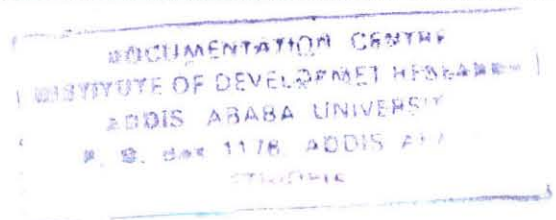 DOCUMENTATION CENTRE
INSTITUTE OF DEVELOPMET RESEARCH
ADDIS ABABA UNIVERSIT
P. O. Box 1176 ADDIS A
ETHIOPIA